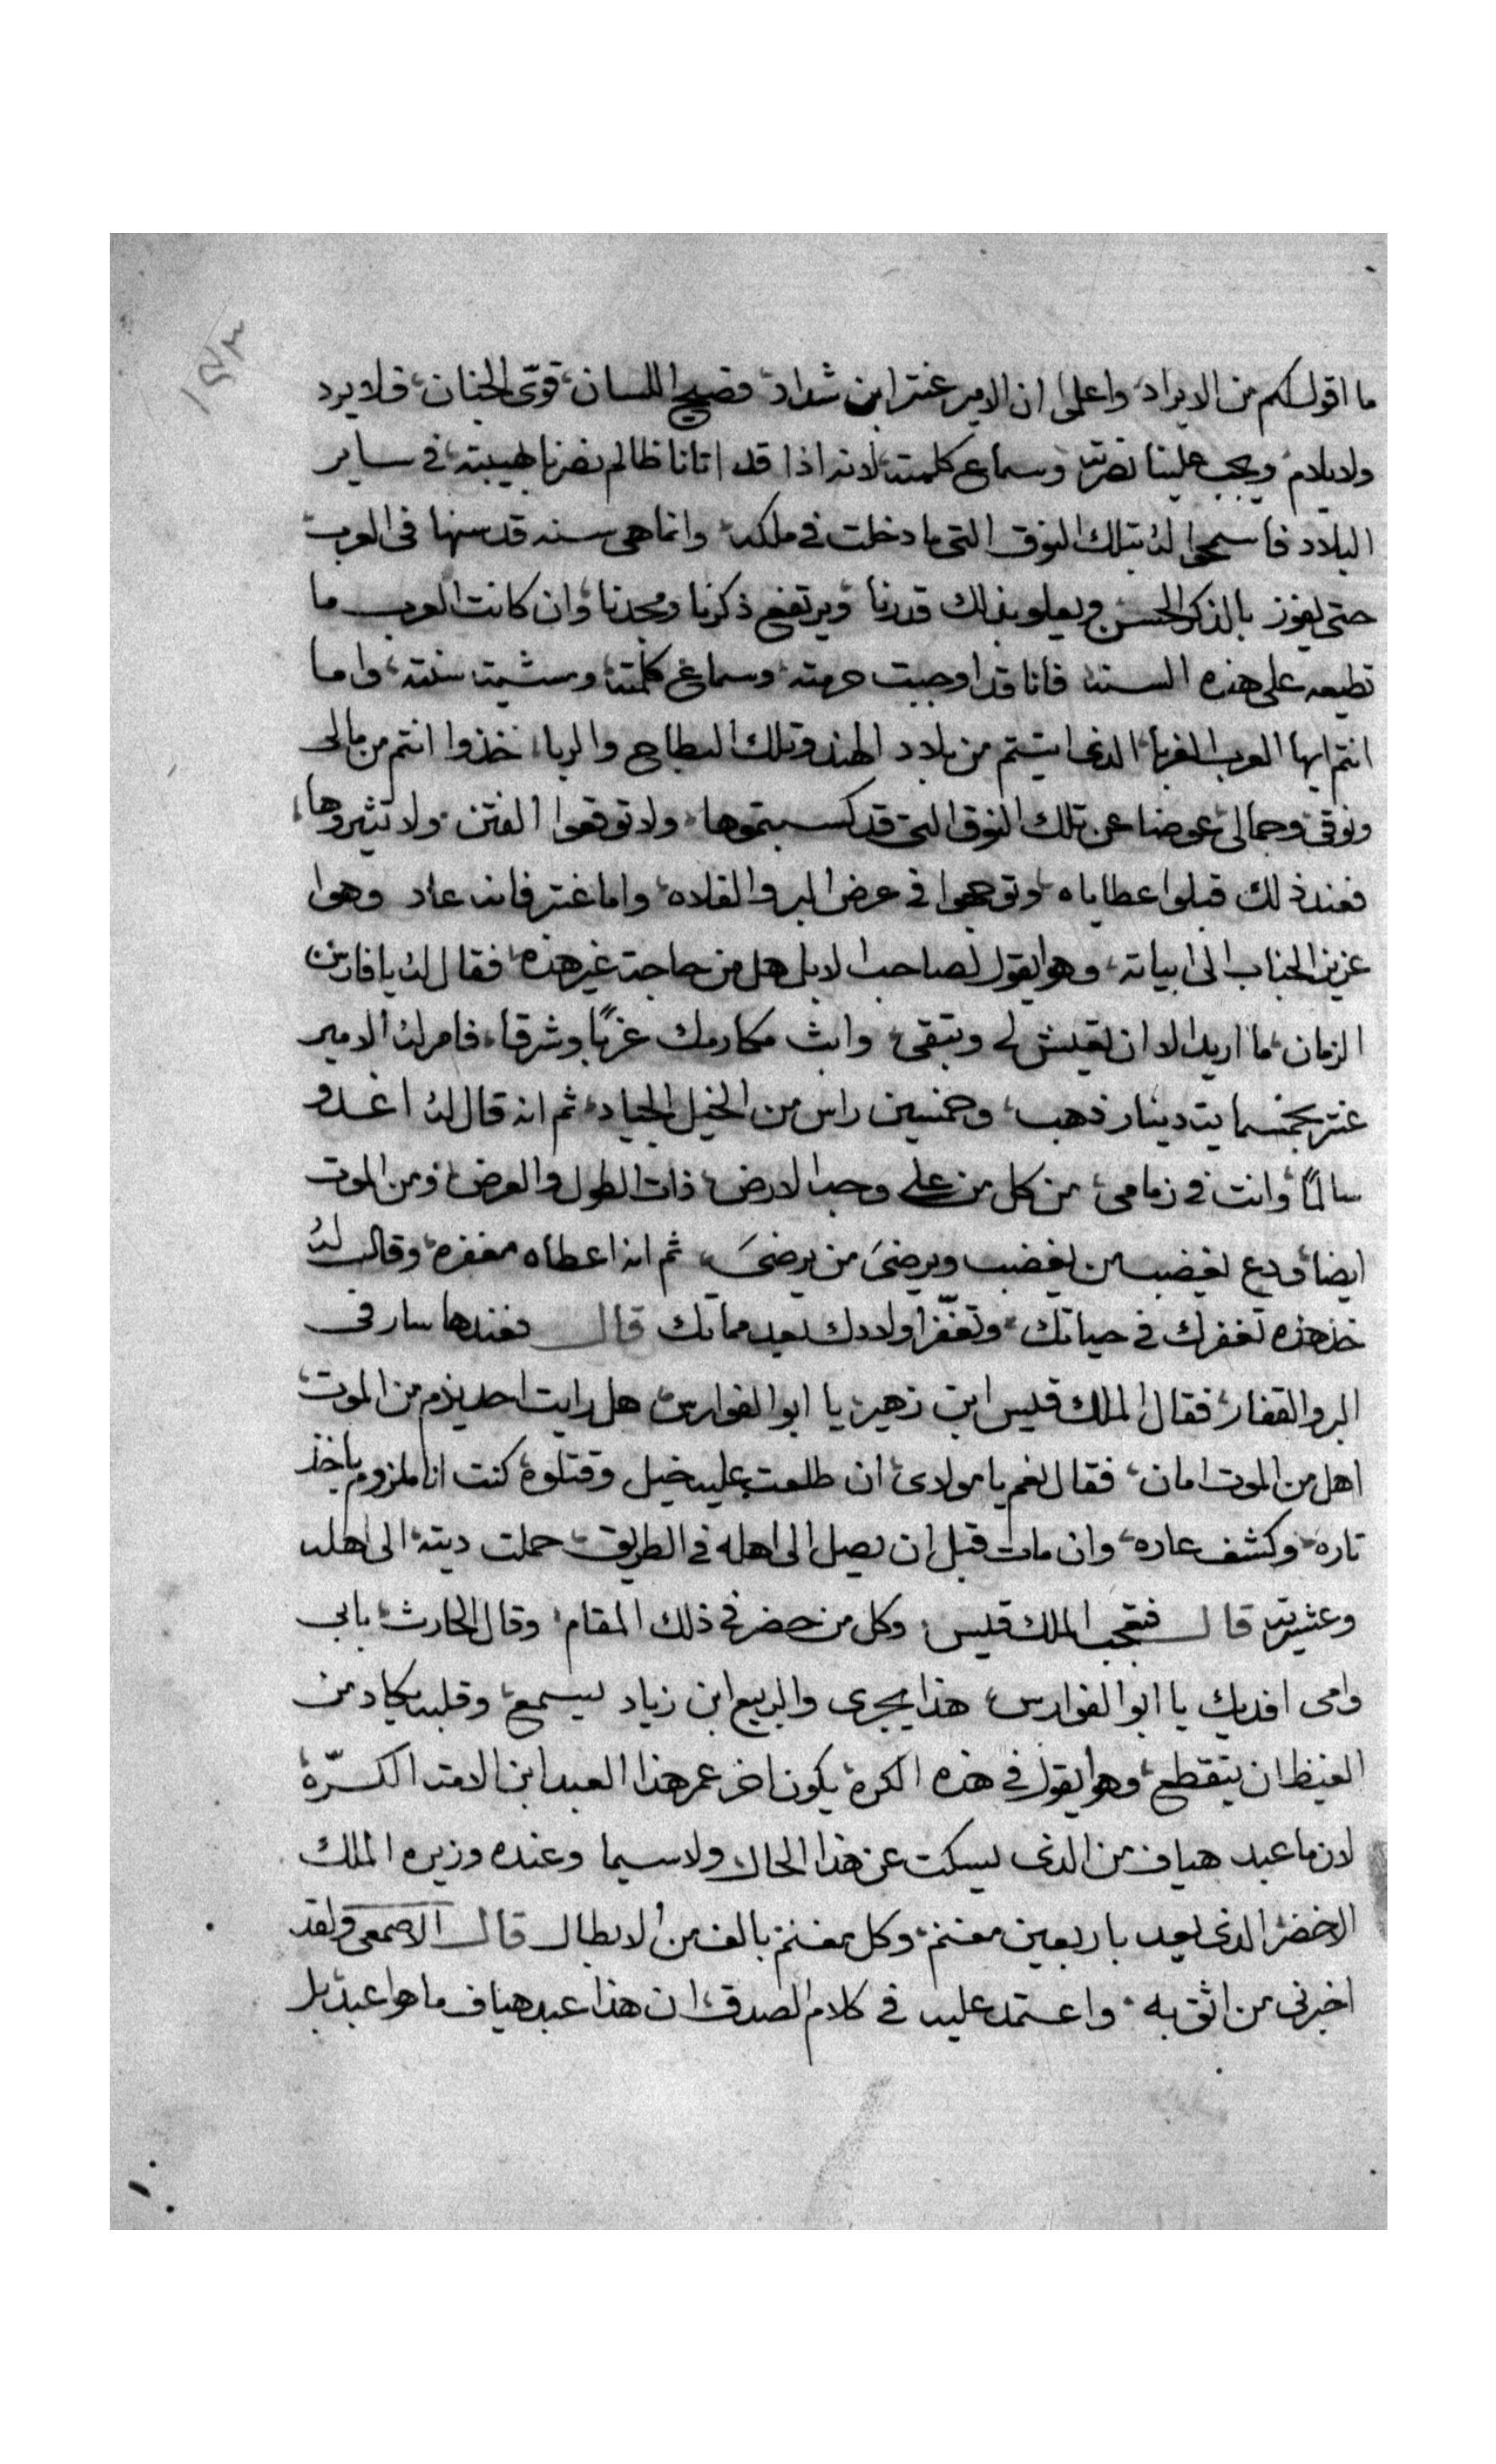 ١٤٣
ما اقول لكم من الايراد، واعلموا ان الامير عنتر ابن شداد، فصيح اللسان، قوى الجنان، فلا يرد
ولا يلام، ويجب علينا نصرته، وسماع كلمته، لانه اذا قد اتانا ظالم نصرنا بهيبته، فى ساير
البلاد فاسمحوا له بتلك النوق التى ما دخلت فى ملكه، وانما هى سنه قد سنها فى العرب
حتى يفوز بالذكر الحسن ويعلو بذلك قدرنا، ويرتفع ذكرنا ومجدنا، وان كانت العرب ما
تطيعه على هذه السنه، فانا قد اوجبت حرمته، وسماع كلمته، وسنته، واما
انتم ايها العرب الغربا، الدى اتيتم من بلاد الهند وتلك البطاح والربا، خذوا انتم من مالى
ونوقى وجمالى، عوضا عن تلك النوق التى قد كسبتموها، ولا توقعوا الفتن، ولا تثيروها،
فعند ذلك قبلوا عطاياه، وتوجهوا فى عرض البر والفلاه، واما عنتر فانه عاد وهوا
عزيز الجناب الى ابياته، وهوا يقول لصاحب الابل هل من حاجة غير هذه، فقال له يا فارس
الزمان، ما اريد الا ان تعيش لى وتبقى، وابث مكارمك غربًا وشرقا، فامر له الامير
عنتر بخمسماية دينار ذهب، وخمسين راس من الخيل الجياد، ثم انه قال له اغدو
سالمًا، وانت فى زمامى، من كل من على وجه الارض، ذات الطول والعرض، ومن الموت
ايضا، ودع يغضب من يغضب ويرضىَ من يرضىَ، ثم انه اعطاه مغفره، وقال له
خذ هذه تغفرك فى حياتك، وتغفّر اولادك بعد مماتك قال فعندها سار فى
البر والقفار، فقال الملك قيس ابن زهير، يا ابوا الفوارس، هل رايت احد يذم من الموت،
اهل من الموت امان، فقال نعم يا مولاى، ان طلعت عليه خيل وقتلوه، كنت انا ملزوم باخذ
تاره، وكشف عاره، وان مات قبل ان يصل الى اهله فى الطريق، حملت ديته الى اهله
وعشيرته قال فتعجب الملك قيس، وكل من حضر فى ذلك المقام، وقال الحارث، بابى
وامى افديك يا ابوا الفوارس، هذا يجرى والربيع ابن زياد يسمع، وقلبه يكاد من
الغيظ ان يتقطع، وهوا يقول فى هذه الكرة، يكون اخر عمر هذا العبد ابن الامه
لان ما عبد هياف من الدى يسكت عن هذا الحال، ولا سيما وعنده وزيره الملك
الاخضر، الدى يعد باربعين مغنم، وكل مغنم بالف من الابطال قال الاصمعى ولقد
اخبرنى من اثق به، واعتمد عليه فى كلام الصدق، ان هذا عبد هياف ما هوا عبد، بل